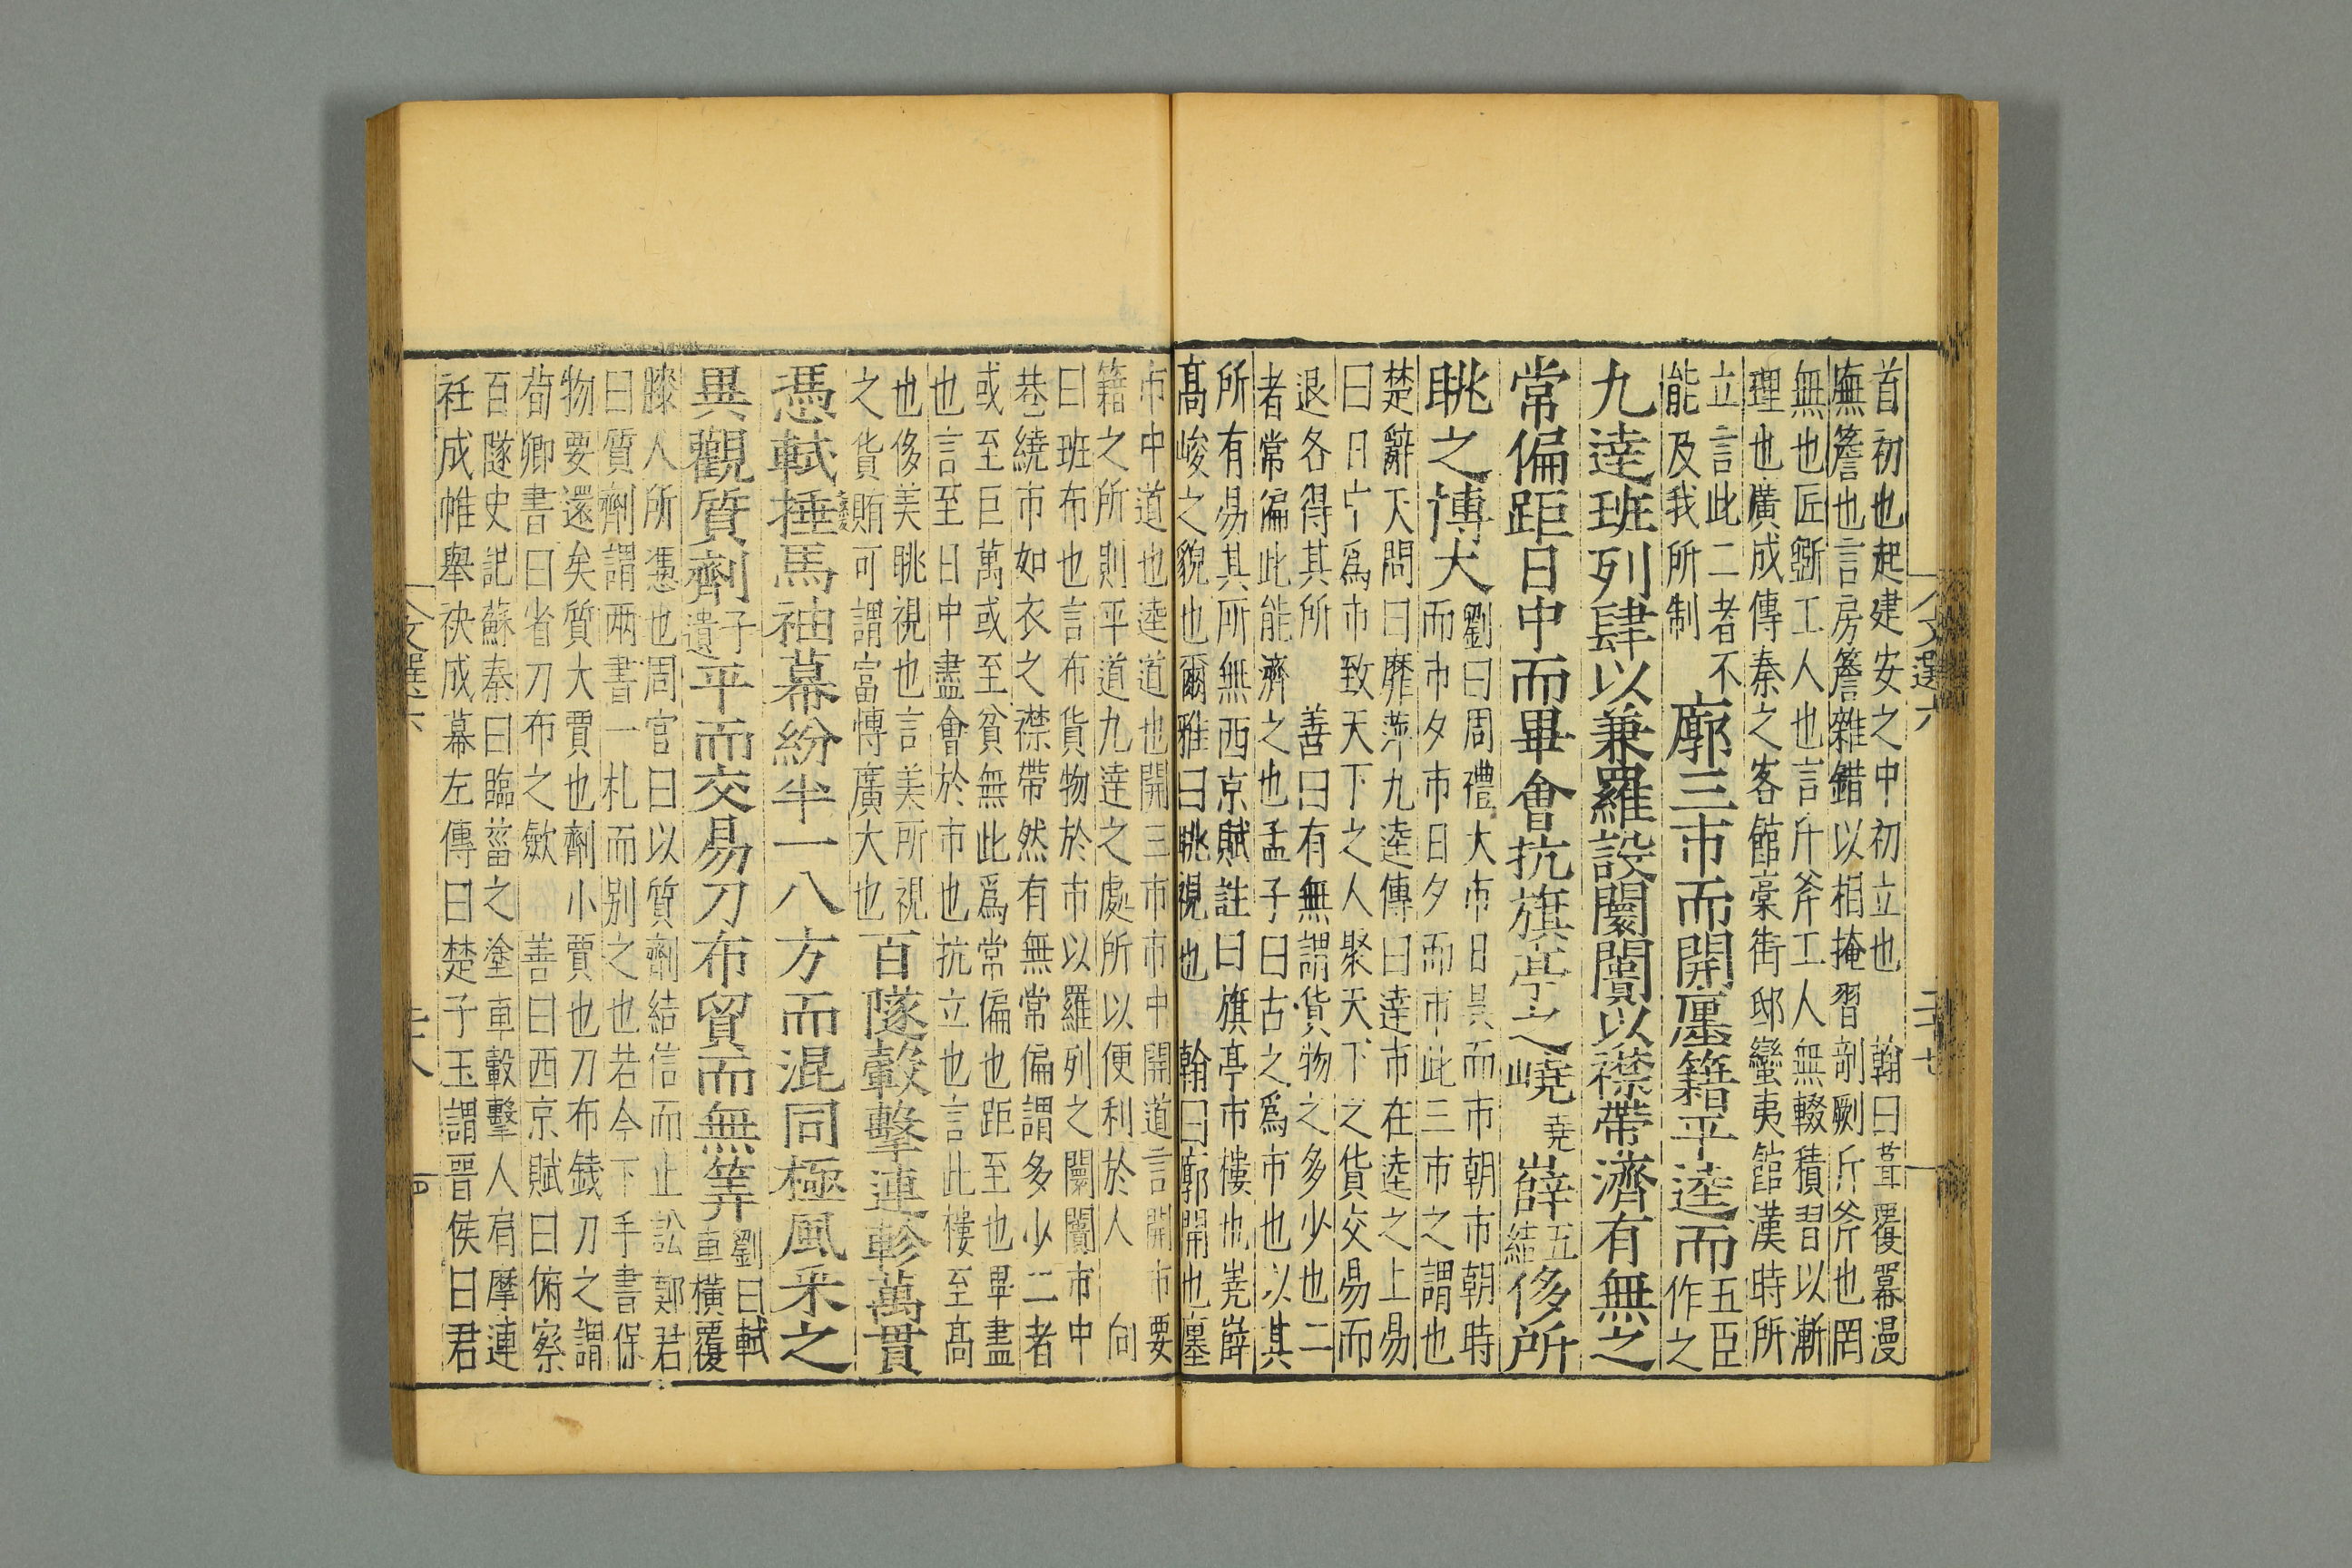 首初也起建安之中初立也　翰曰葺覆冪漫
廡簷也言房簷雜錯以相掩習剞劂斤斧也罔
無也匠斵工人也言斤斧工人無輟積習以漸
理也廣成傳秦之客館藁街邸蠻夷館漢時所
立言此二者不
能及我所制
廓三市而開㕓籍平逵而
五臣
作之
九逵班列肆以兼羅設闤闠以襟帶濟有無之
常偏距日中而畢會抗旗亭之嶢
堯
薛
五
結
侈所
眺之博大
劉曰周禮大市日昃而市朝市朝時
而市夕市日夕而市此三市之謂也
楚辭天問曰靡蓱九逵傳曰逵市在逵之上易
曰日中爲市致天下之人聚天下之貨交易而
退各得其所　善曰有無謂貨物之多少也二
者常偏此能濟之也孟子曰古之爲市也以其
所有易其所無西京賦註曰旗亭市樓也嶤薛
高峻之貌也爾雅曰眺視也　翰曰廓開也㕓
市中道也逵道也開三市市中開道言開市要
籍之所則平道九逵之處所以便利於人　向
曰班布也言布貨物於市以羅列之闤闠市中
巷繞市如衣之襟帶然有無常偏謂多少二者
或至巨萬或至貧無此爲常偏也距至也畢盡
也言至日中盡會於市也抗立也言此樓至高
也侈美眺視也言美所視
之貨賄可謂富博廣大也
百隧轂擊連軫萬貫
憑軾捶馬袖幕紛半一八方而混同極風采之
異觀質劑
子
遺
平而交易刀布貿而無筭
劉曰軾
車橫覆
膝人所憑也周官曰以質劑結信而止訟鄭君
曰質劑謂两書一札而别之也若今下手書保
物要還矣質大賈也劑小賈也刀布錢刀之謂
荀卿書曰省刀布之歛　善曰西京賦曰俯察
百隧史記蘇秦曰臨菑之塗車轂擊人肩摩連
衽成帷舉袂成幕左傳曰楚子玉謂晋侯曰君
文選六
二十七
文選六
二十八